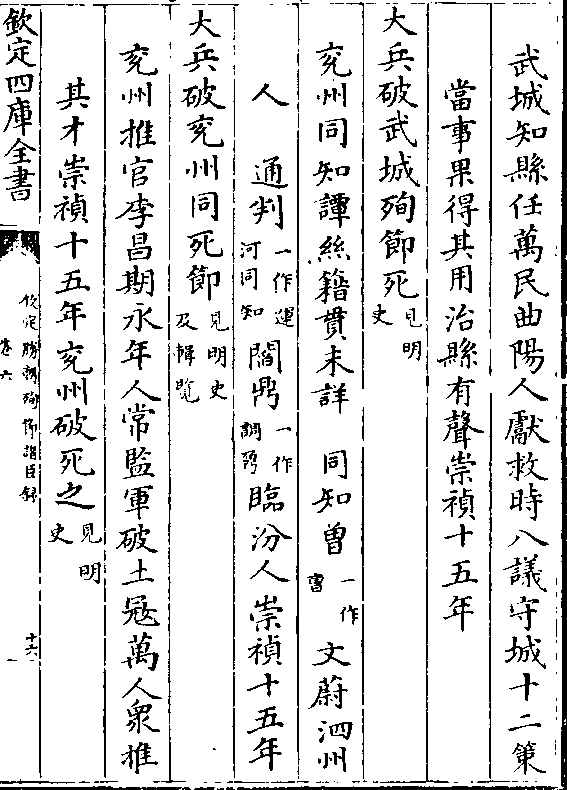 武城知縣任萬民曲陽人獻救時八議守城十二策
當事果得其用治縣有聲崇禎十五年
大兵破武城殉節死見明史
兖州同知譚絲籍貫未詳 同知曾一作曹文蔚泗州
人 通判一作運河同知閻鼎一作調鼐臨汾人崇禎十五年
大兵破兖州同死節見明史及輯覽
兖州推官李昌期永年人常監軍破土冦萬人衆推
其才崇禎十五年兖州破死之見明史
欽定四庫全書
欽定勝朝殉節諸臣錄
卷六
十六